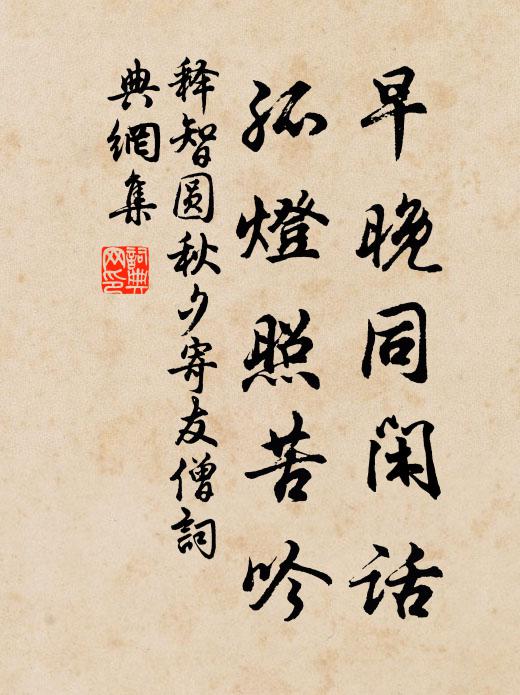 早晚同闲话
孤燈照苦吟
释智圆秋夕寄友僧詞
典網集
詞典
网印